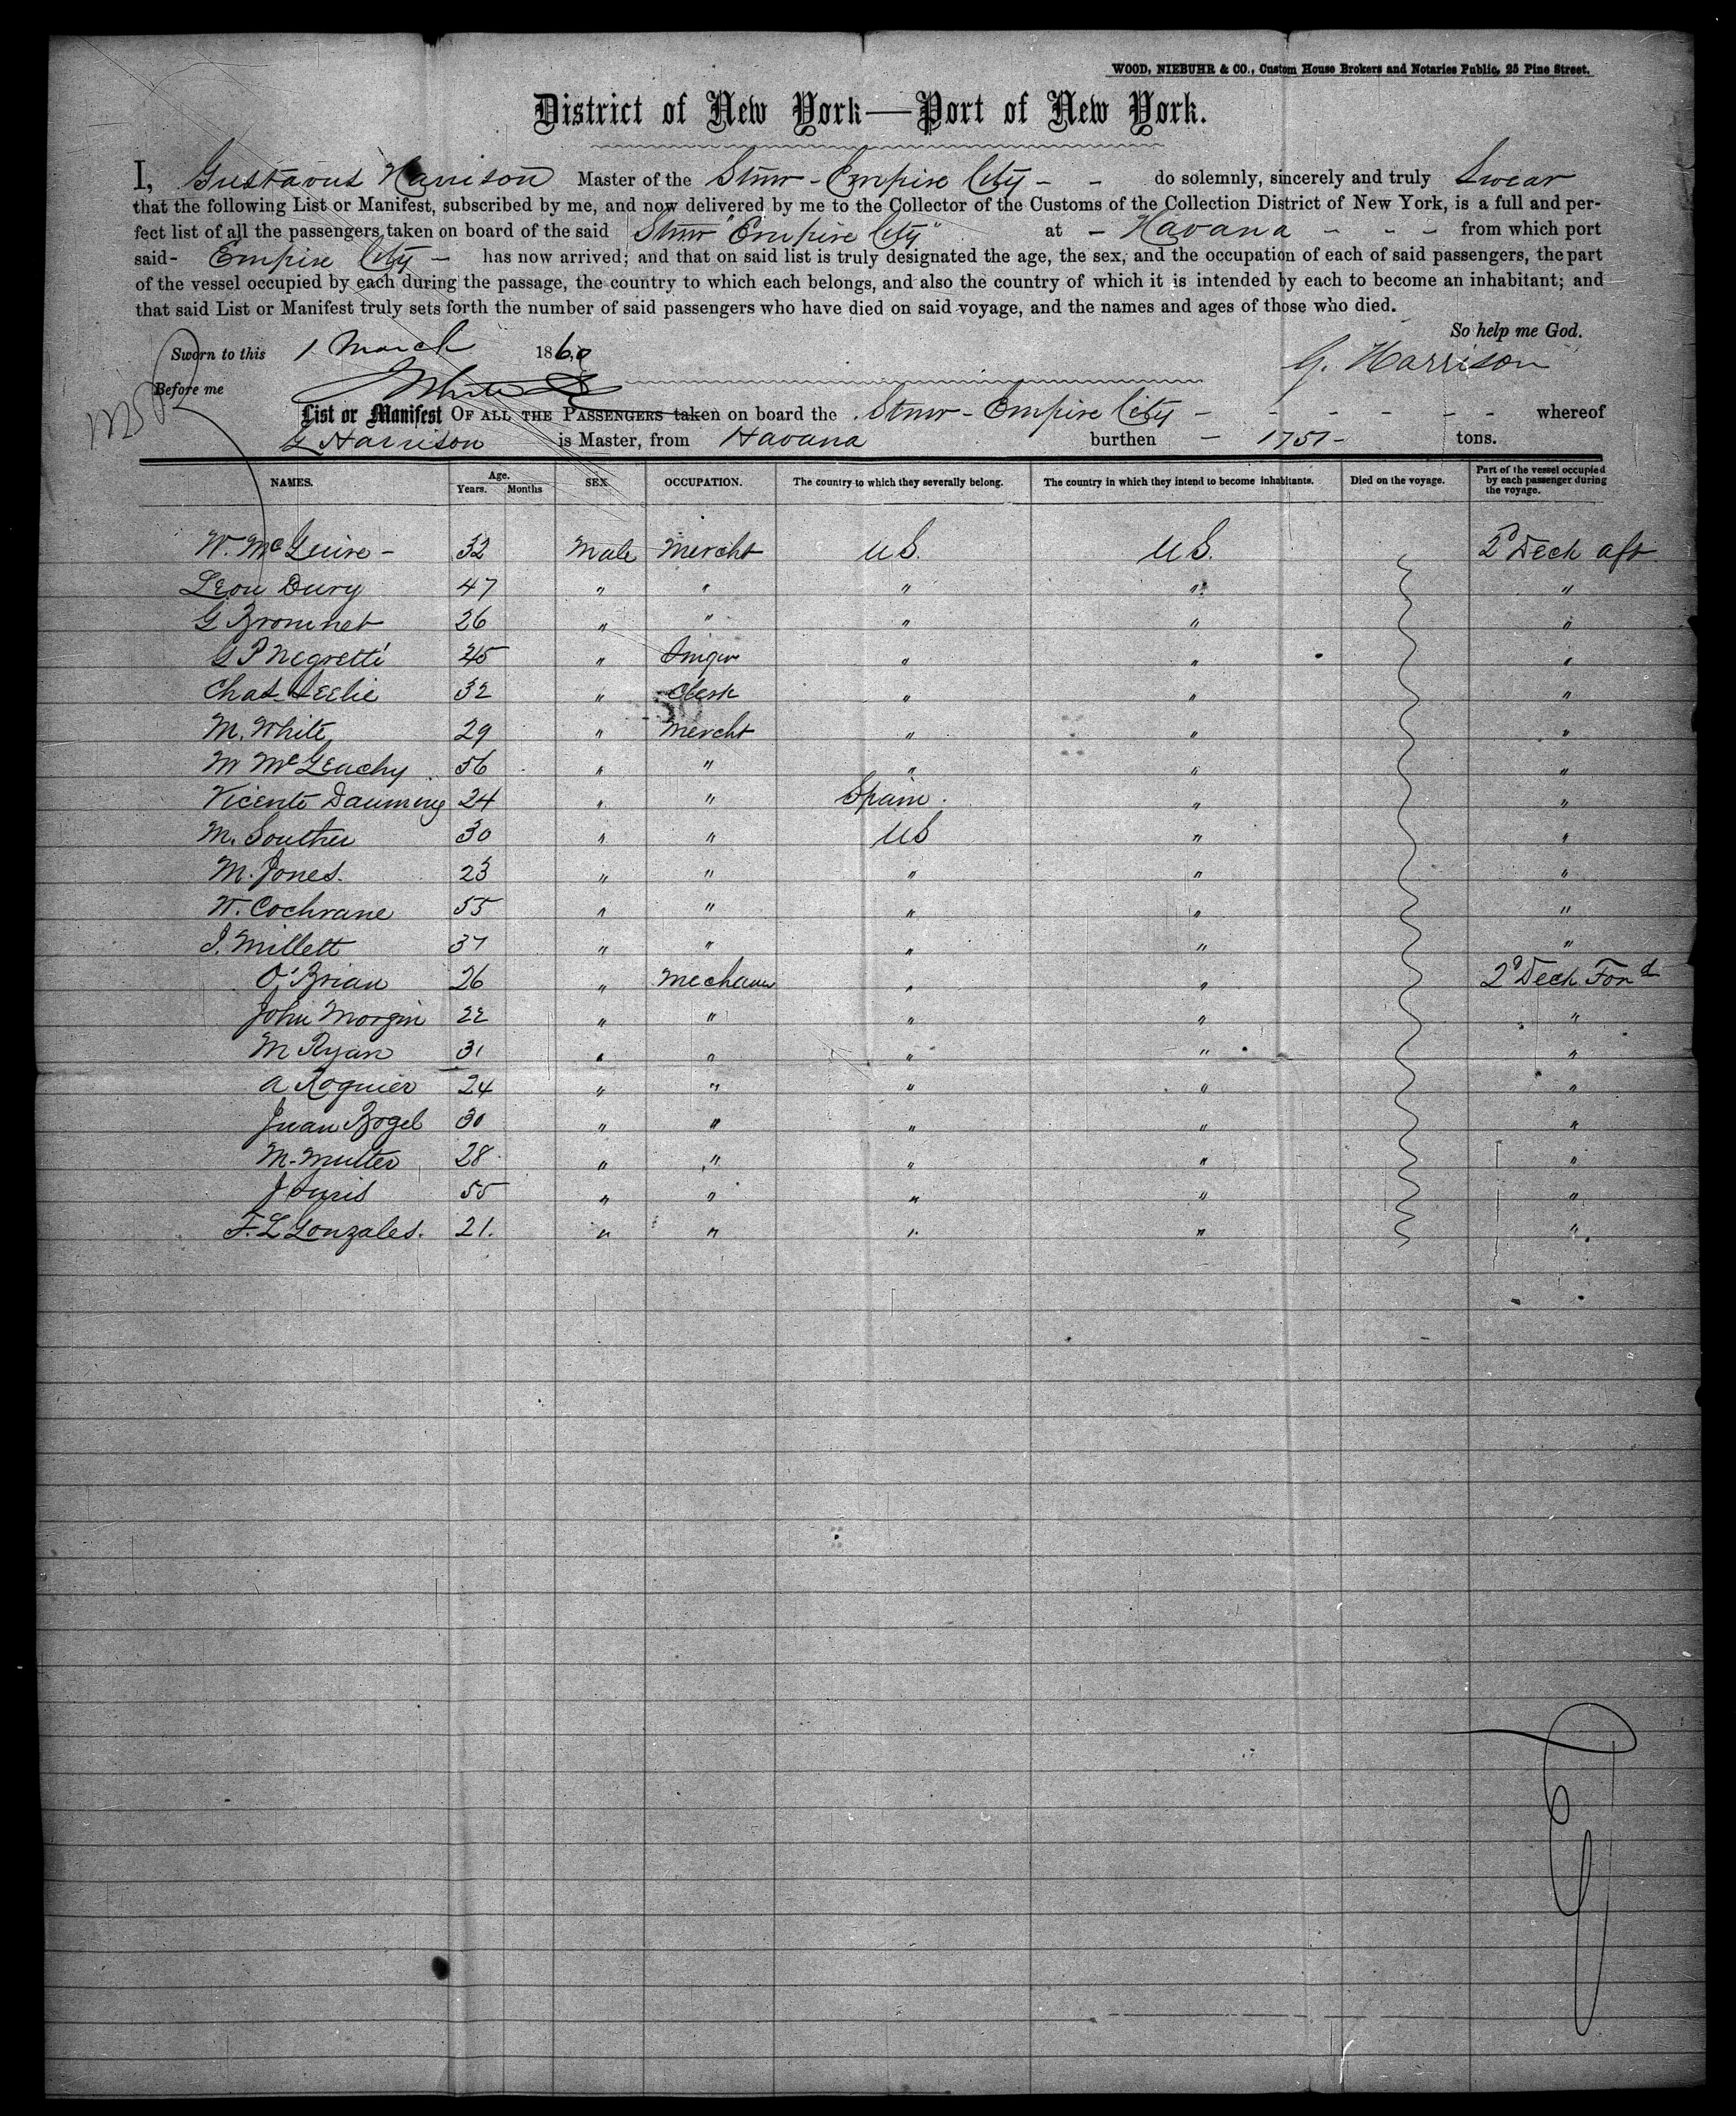 WOOD, NIEBUHR & CO., Custom House Brokers and Notaries Public, 25 Pine Street.
District of New York—Port of New York.
I, Gustavus Harrison Master of the Stmr - Empire City - - do solemnly, sincerely and truly Swear
that the following List or Manifest, subscribed by me, and now delivered by me to the Collector of the Customs of the Collection District of New York, is a full and per-
fect list of all the passengers taken on board of the said Stmr "Empire City" at - Havana - - - from which port
said- Empire City - has now arrived; and that on said list is truly designated the age, the sex, and the occupation of each of said passengers, the part
of the vessel occupied by each during the passage, the country to which each belongs, and also the country of which it is intended by each to become an inhabitant; and
that said List or Manifest truly sets forth the number of said passengers who have died on said voyage, and the names and ages of those who died.
So help me God.
Sworn to this 1 March 1860 G. Harrison
Before me White
List or Manifest OF ALL THE PASSENGERS taken on board the Stmr - Empire City - - - - - - - whereof
G Harrison is Master, from Havana burthen - 1751 - tons.
NAMES. Age. Years. Months SEX. OCCUPATION. The country to which they severally belong. The country in which they intend to become inhabitants. Died on the voyage. Part of the vessel occupied by each passenger during the voyage.
W. McGuire - 32 Male Mercht US. US. 2d Deck aft
Leon Dury 47 " " " " "
G Brominet 26 " " " " "
G P Negretti 45 " " " "
Chas Leelie 32 " Clerk " " "
M. White 29 " Mercht " " "
M McGeachy 56 " " " " "
Vicente 24 " " Spain. " "
M. Souther 30 " " US " "
M. Jones. 23 " " " " "
W. Cochrane 55 " " " " "
J. Millett 37 " " " " "
O'Brian 26 " " " 2d Deck Ford
John Morgin 22 " " " " "
M Ryan 31 " " " " "
A Roquier 24 " " " " "
Juan Bogel 30 " " " " "
M. Multer 28 " " " " "
J 55 " " " " "
F. L Gonzales. 21. " " " " "